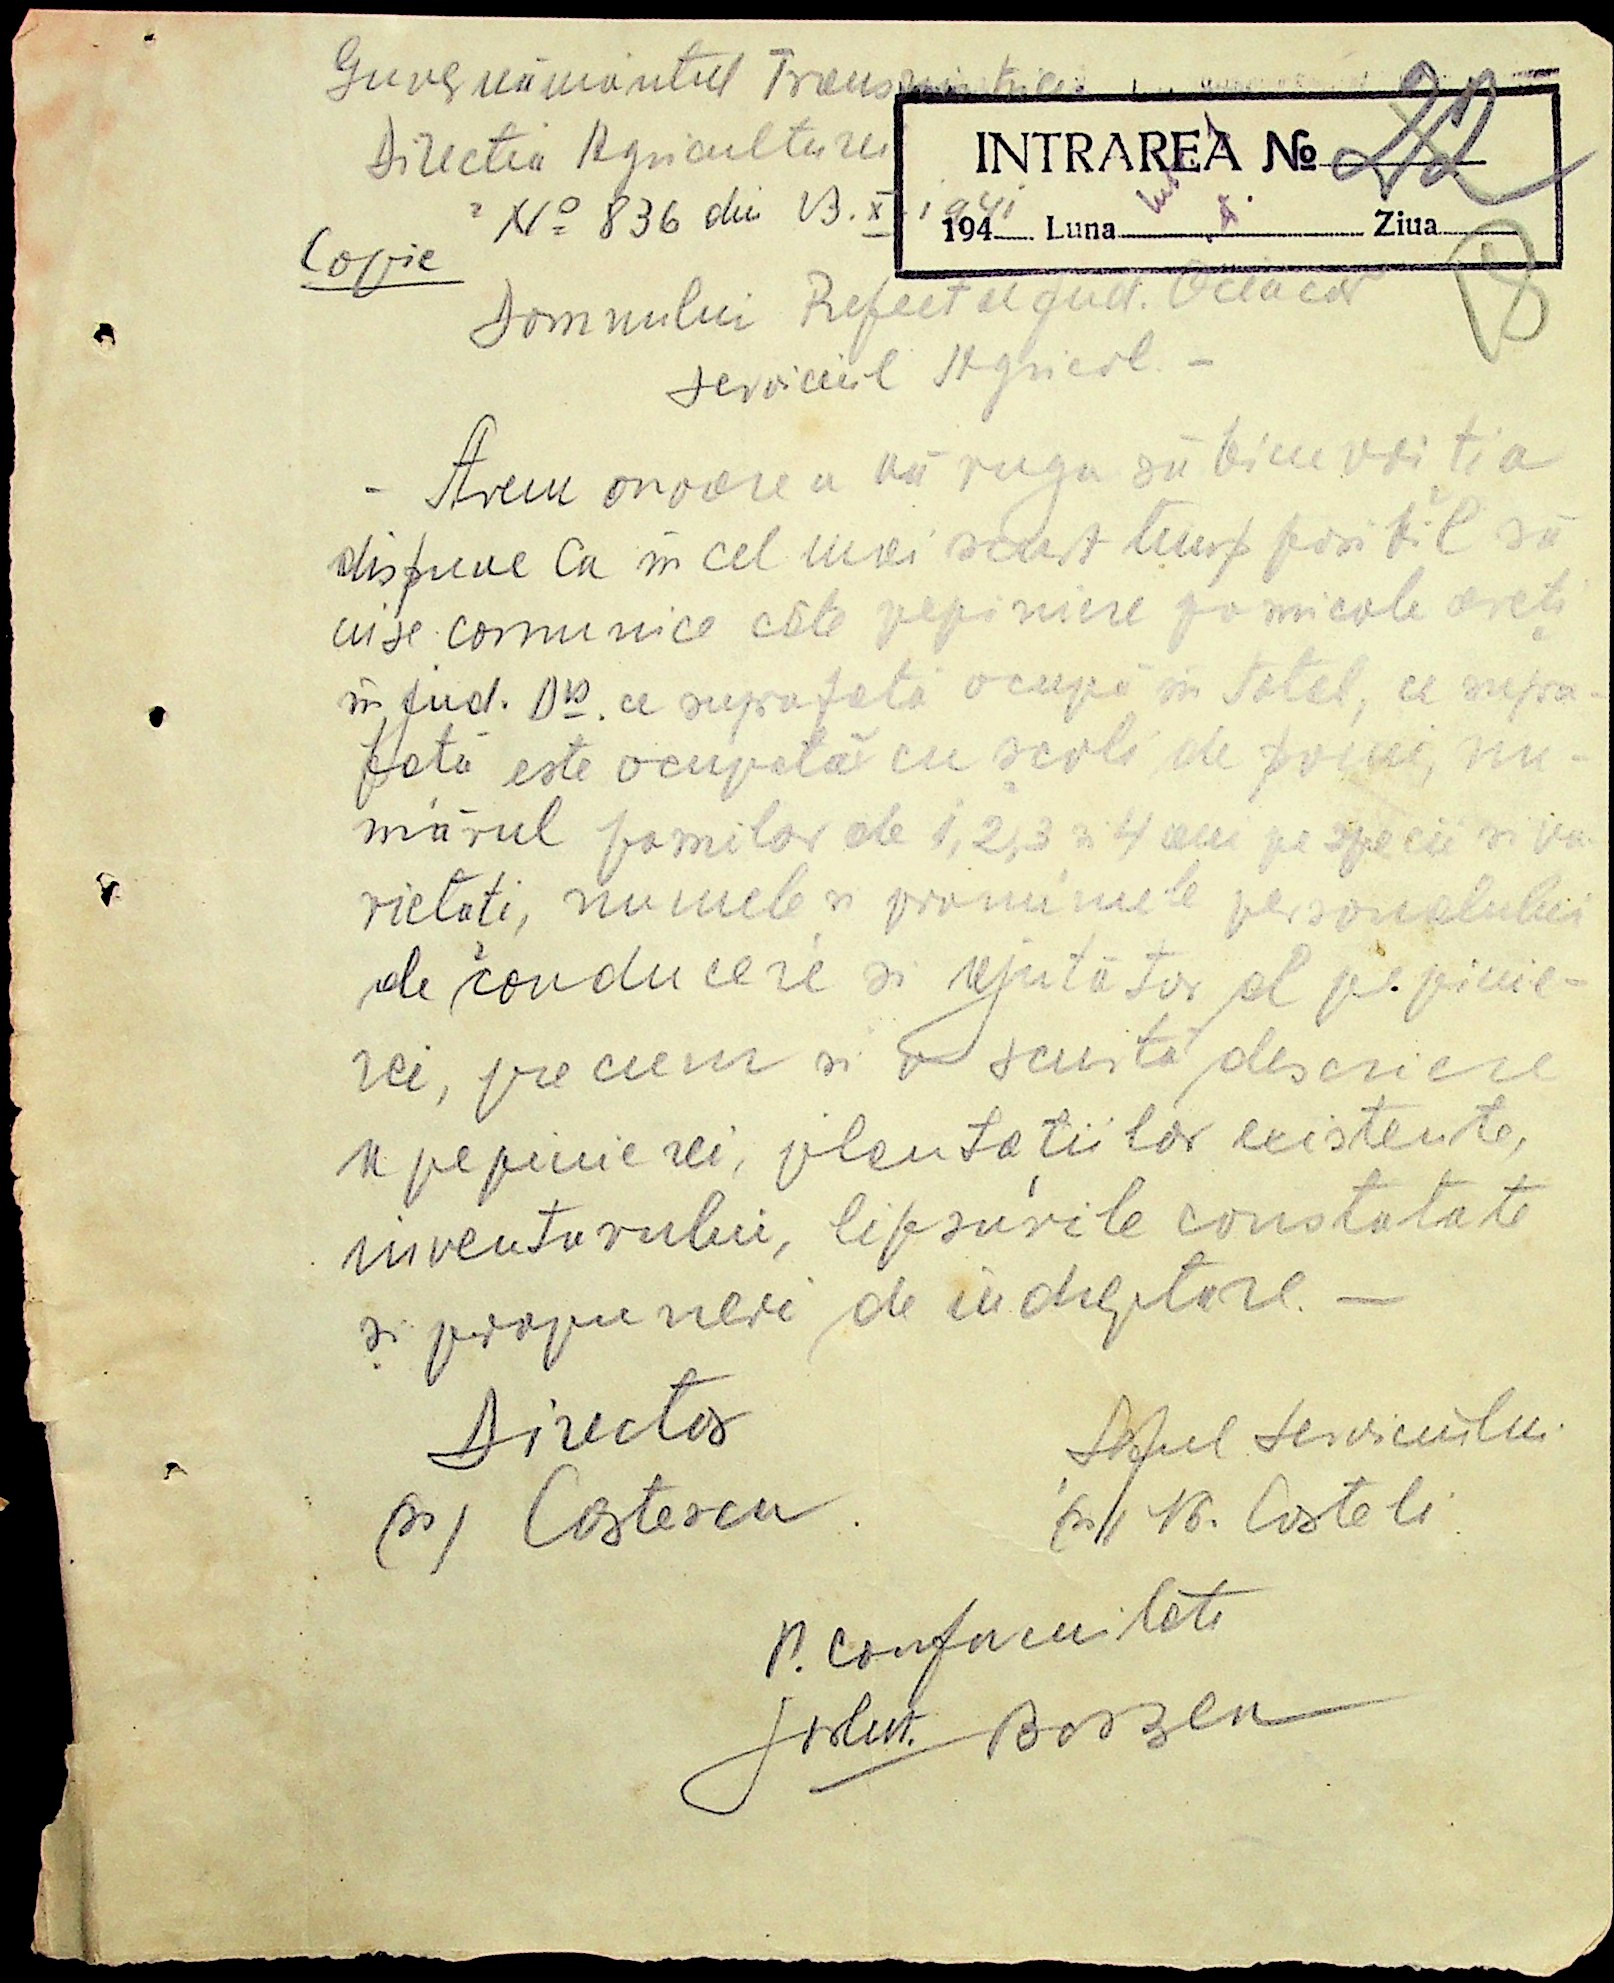 Guvernământul Transnistriei
Directia Agriculturei
No 836 din 13.X.1941
INTRAREA No 22
194 Luna X. Ziua
Copie
Domnului Prefect al jud. Oceacov
Serviciul Agricol. -
- Avem onoarea vă ruga să binevoiți a
dispune Ca în cel mai scurt timp posibil să
ni se comunice câte pepiniere pomicole aveți
în jud. Dvs. ce suprafată ocupă în total, ce supra-
fată este ocupată cu scoli de pomi, nu-
mărul pomilor de 1, 2, 3 si 4 ani pe specii si va-
rietati, numele si pronumele personalului
de conducere si ajutător al pepinie-
rei, precum si o scurtă descriere
a pepinierei, plantațiilor existente,
inventarului, lipsurile constatate
si propuneri de îndreptare. -
Director
(ss) Costescu
Șeful Serviciului
(ss) N. Costeli
P. conformitate